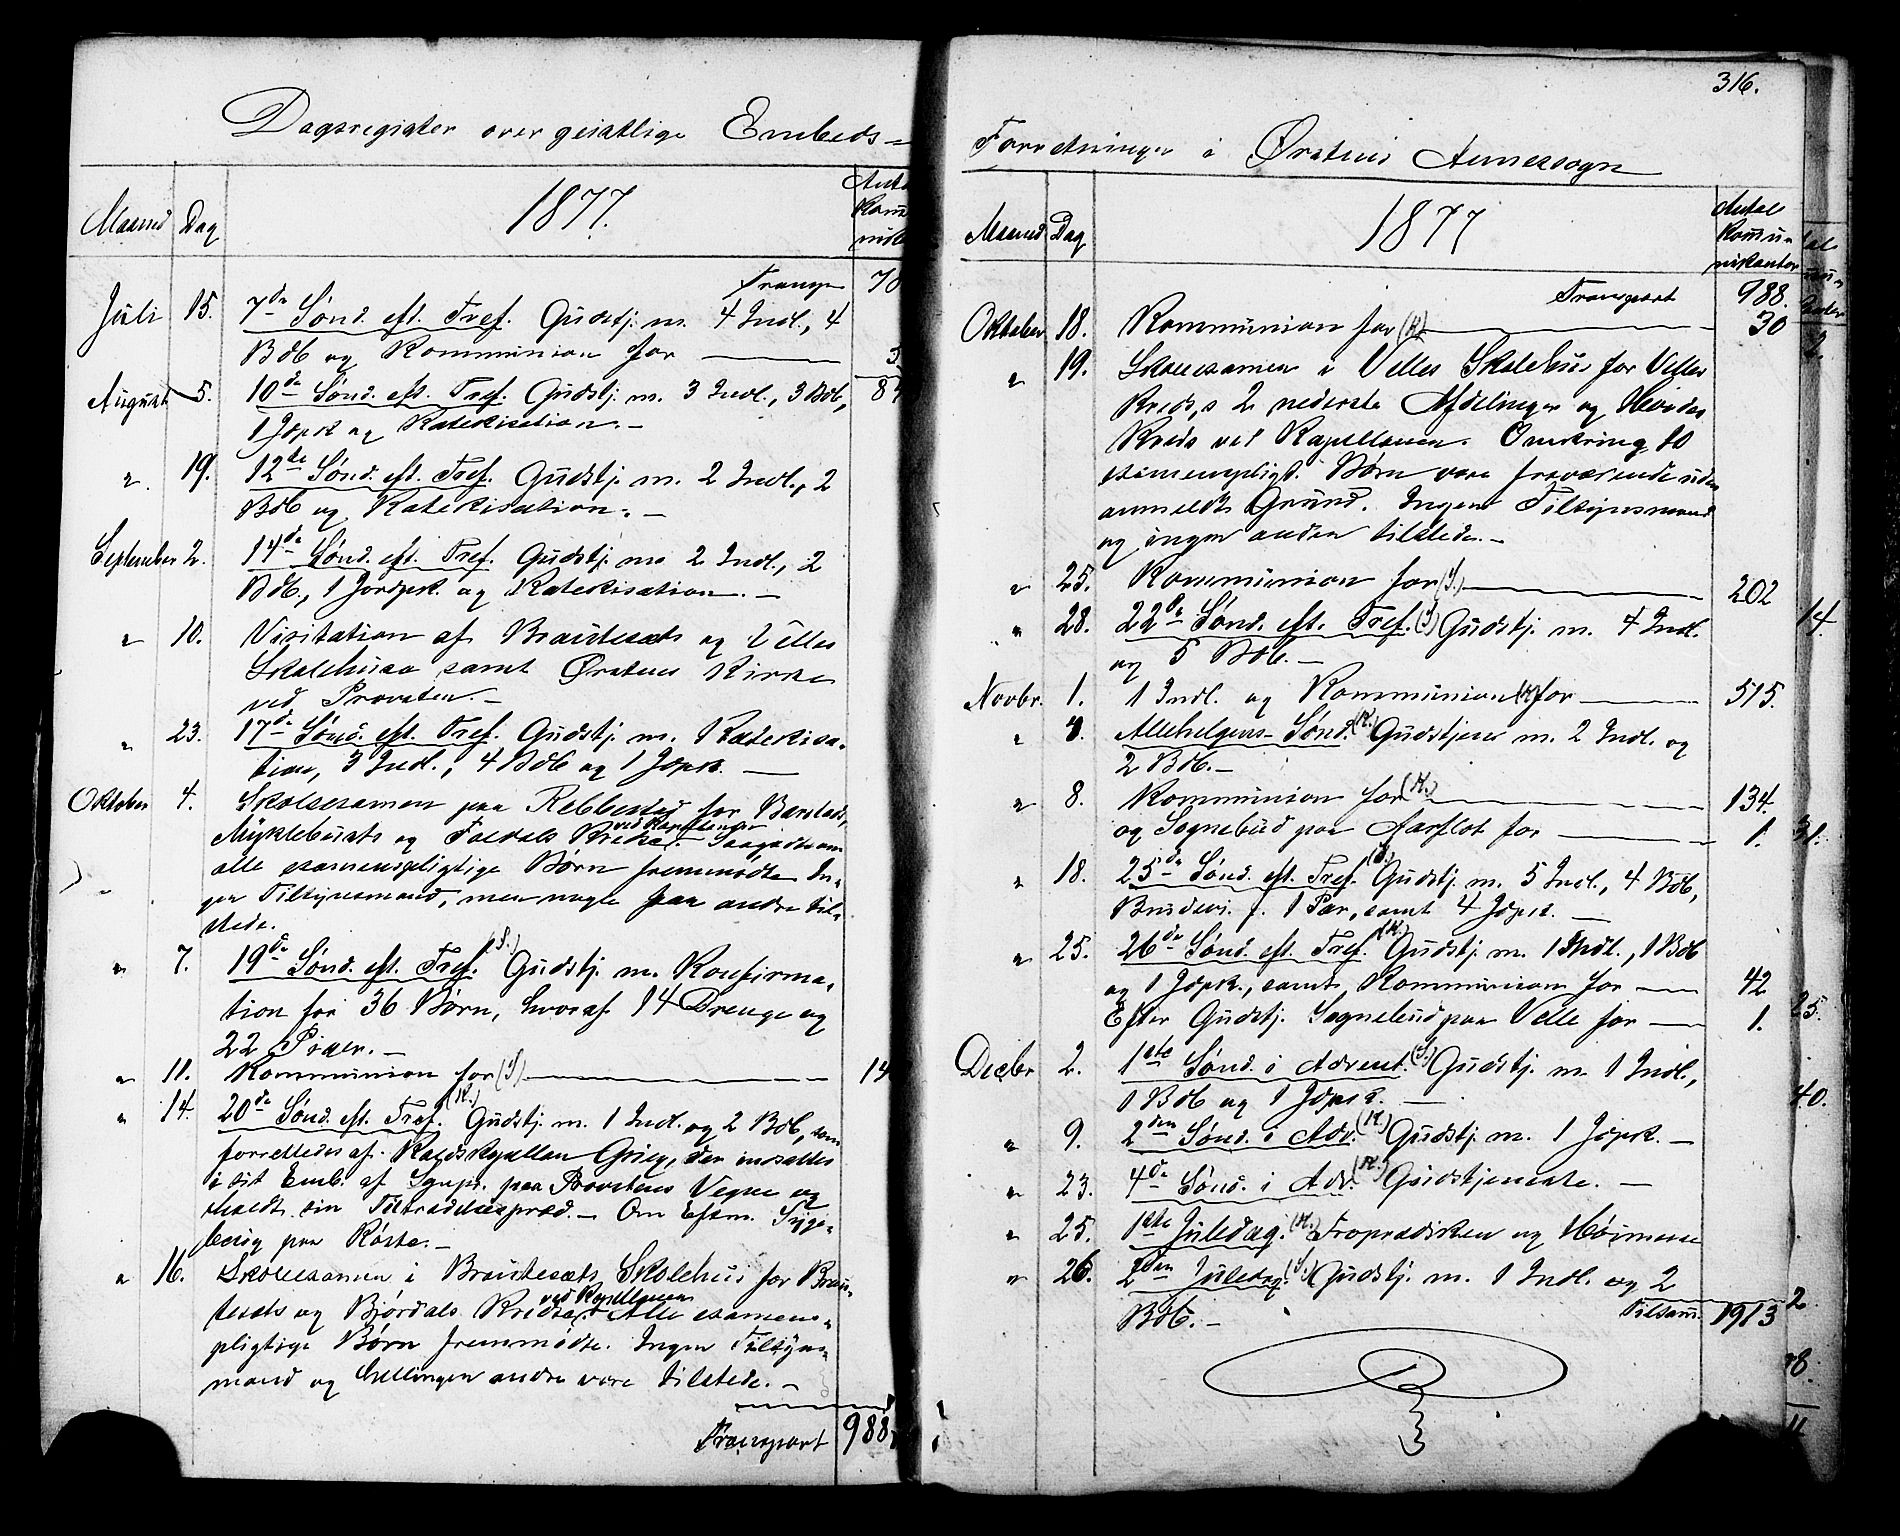 316.
Dagsregister over geistlige Embeds-
Maaned Dag 1877.
Transp 78
Juli 15. 7de Sønd. eft. Tref. Gudstj. m. 4 Indl., 4
Bdb og Kommunion for
August 5. 10de Sønd. eft. Tref. Gudstj. m. 3 Indl., 3 Bdb, 84
1 Jdpk og Katekisation. -
" 19. 12te Sønd. eft. Tref. Gudstj. m. 2 Indl., 2
Bdb og Katekisation. -
September 2. 14de Sønd. eft. Tref. Gudstj. m. 2 Indl., 2
Bdb., 1 Jordpk. og Katekisation. -
" 10. Visitation af Brautesæts og Velles
Skolehuse samt Ørstens Kirke
ved Provsten. -
" 23. 17de Sønd. eft. Tref. Gudstj. m. Katekisa-
tion, 3 Indl., 4 Bdb og 1 Jdpk. -
Oktober 4. Skoleexamen paa Rebbestad for Barstads,
Myklebusts og Foldals Kredse ved Kapellanen.
alle examenspligtige Børn fremmødte. In-
gen Tilsynsmand, men nogle faa andre til-
stede.
" 7. 19de Sønd. eft. Tref. (S.) Gudstj. m. Konfirma-
tion for 36 Børn, hvoraf 14 Drenge og
22 Piger. -
" 11. Kommunion for (S)
" 14. 20de Sønd. eft. Tref. (K.) Gudstj. m. 1 Indl. og 2 Bdb, som
forrettedes af Kaldskapellan Grieg, der indsattes
i sit Emb. af Sgnpr. paa Provstens Vegne og
holdt sin Tiltrædelsespræd. - Om Efterm. Syge-
besøg paa
" 16. Skoleexamen i Brautesæts Skolehus for Brau-
tesæts og Bjørdals Kredse ved Kapellanen. Alle examens-
pligtige Børn fremmødte. Ingen Tilsyns-
mand og hellingen andre vare tilstede. -
Transport 988
Forretninger i Ørstens Annexsogn
Maaned Dag 1877 Antal
Kommu-
nikanter
Transport 988.
Oktober 18. Kommunion for (K) 30
" 19. Skoleexamen i Velles Skolehus for Velles
Kreds's 2 nederste Afdelinger og Hovdes
Kreds ved Kapellanen. Omkring 10
examenspligt. Børn vare fraværende uden
anmeldt Grund. Ingen Tilsynsmand
og ingen anden tilstede. -
" 25. Kommunion for (S.) 202
" 28. 22de Sønd. eft. Tref. (S) Gudstj. m. 4 Indl.
og 5 Bdb. -
Novbr. 1. 1 Indl. og Kommunion (K) for 515.
" 4. Allehelgens Sønd. (K.) Gudstjenes m. 2 Indl. og
2 Bdb. -
" 8. Kommunion for (K.) 134.
og Sognebud paa Aarflot for 1.
" 18. 25de Sønd. eft. Tref. (S.) Gudstj. m. 5 Indl., 4 Bdb,
Brudevi. f. 1 Par, samt 4 Jdpk. -
" 25. 26de Sønd. eft. Tref. (K.) Gudstj. m. 1 Indl., 1 Bdb
og 1 Jdpk., samt Kommunion for 42
Efter Gudstj. Sognebud paa Velle for 1.
Decbr 2. 1ste Sønd. i Advent. (S.) Gudstj. m. 1 Indl.,
1 Bdb og 1 Jdpk. -
" 9. 2den Sønd. i Adv. (K) Gudstj. m. 1 Jdpk. -
" 23. 4de Sønd. i Adv. (K.) Gudstjeneste. -
" 25. 1ste Juledag. (K.) Froprædiken og Høimesse
" 26. 2den Juledag. (S.) Gudstj. m. 1 Indl. og 2
Bdb. - Tilsam. 1913